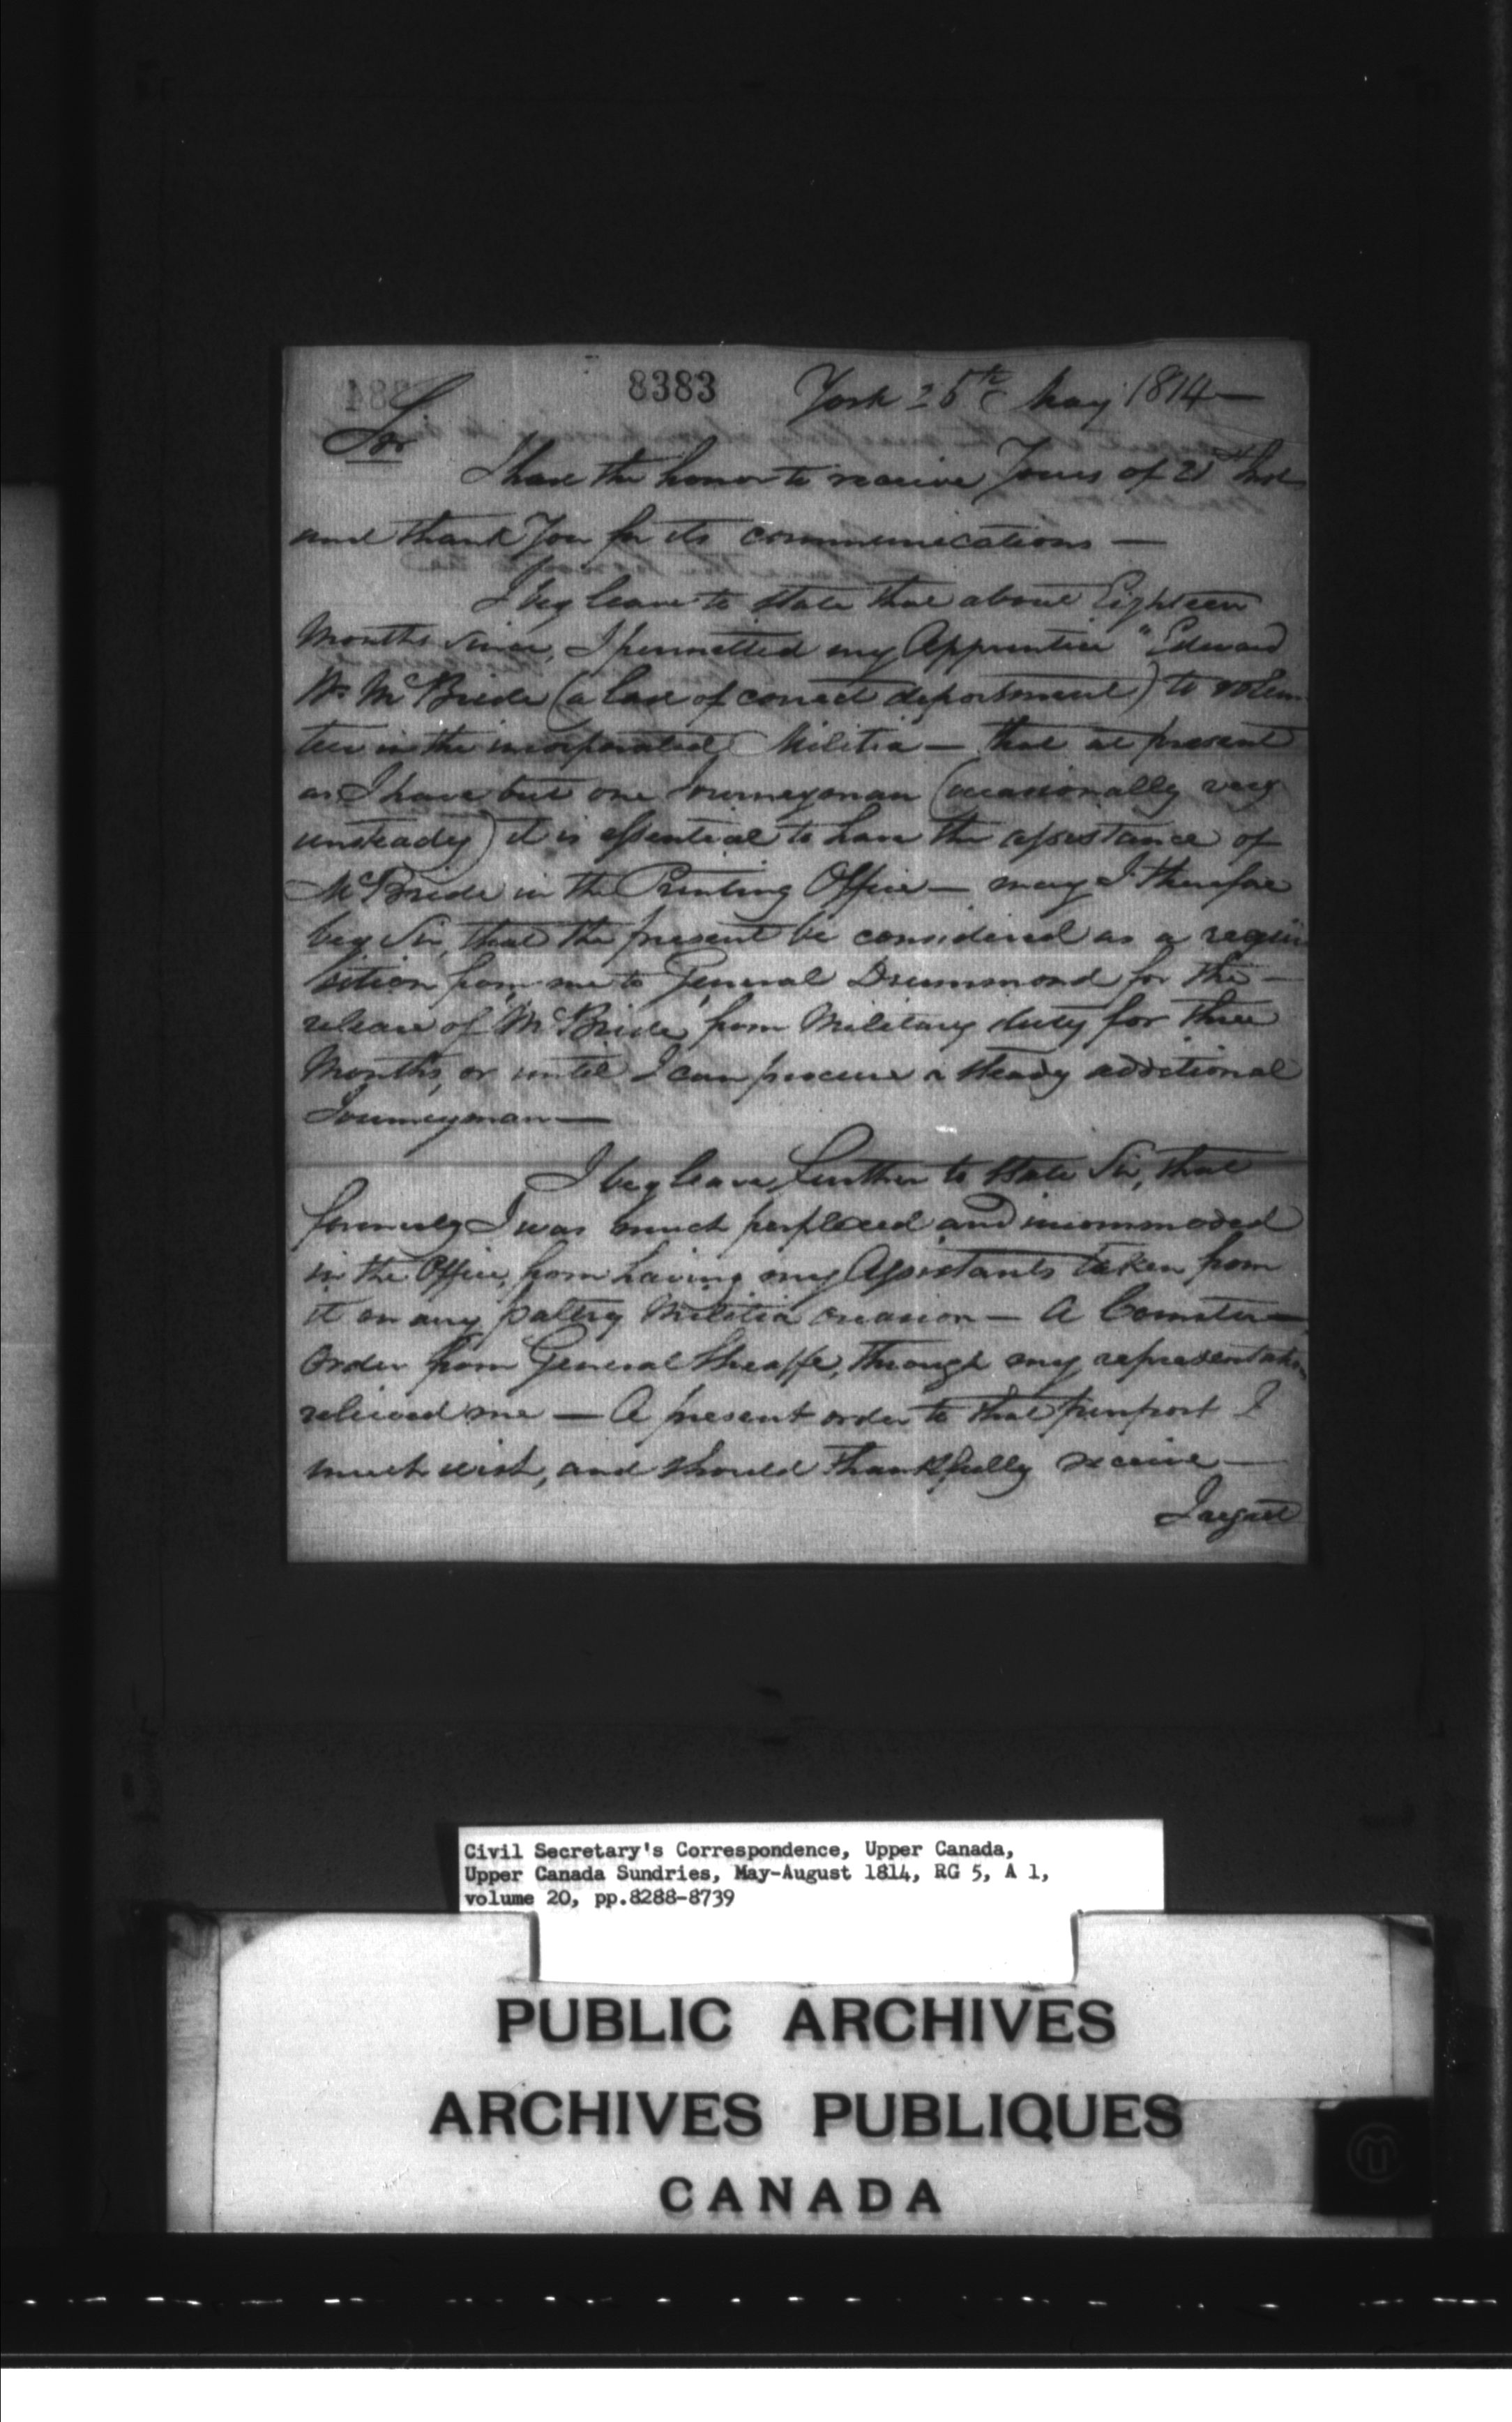 8383
York 25th May 1814—
Sir
I have the honor to receive Yours of 21st Inst
and thank You for its communications —
I beg leave to state that about Eighteen
Months since, I permitted my Apprentice "Edward
Wm McBride (a lad of correct deportment) to volun-
teer in the incorporated Militia — that at present
as I have but one Journeyman (occasionally very
unsteady) it is essential to have the assistance of
McBride in the Printing Office — may I therefore
beg Sir, that the present be considered as a requi
sition from me to General Drummond for the —
release of "McBride" from Military duty for three
Months, or until I can procure a steady additional
Journeyman —
I beg leave further to state Sir, that
formerly I was much perplexed and incommoded
in the Office, from having my Assistants taken from
it on any paltry Militia occasion — A Counter —
Order from General Sheaffe, through my representation
relieved me — A present order to that purport I
much wish, and should thankfully receive —
I regret
Civil Secretary's Correspondence, Upper Canada,
Upper Canada Sundries, May-August 1814, RG 5, A 1,
volume 20, pp.8288-8739
PUBLIC ARCHIVES
ARCHIVES PUBLIQUES
CANADA